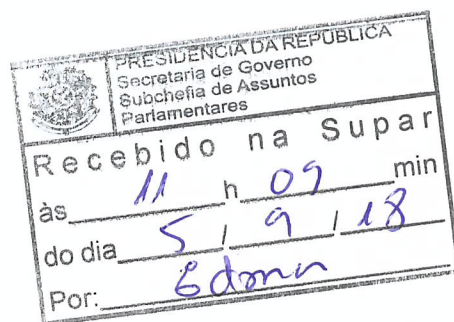 PRESIDÊNCIA DA REPÚBLICA
Secretaria de Governo
Subchefia de Assuntos
Parlamentares
Recebido na Supar
às 11 h 09 min
do dia 5 / 9 / 18
Por: